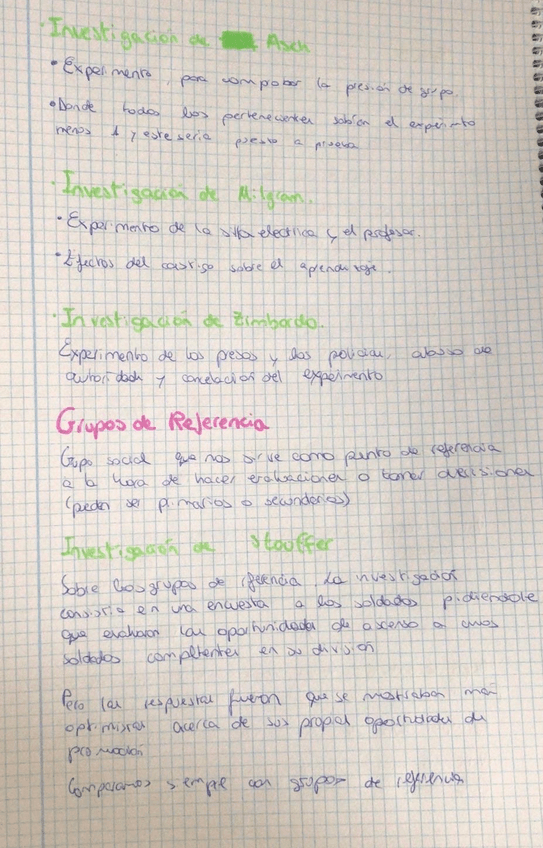 Investigación de Asch
• Experimento, para comprobar la presión de grupo.
• Donde todos los pertenecientes sabían el experimento
menos 1 y este sería puesto a prueba
· Investigación de Milgram.
• Experimento de la silla electrica y el profesor.
• Efectos del castigo sobre el aprendizaje.
· Investigación de Zimbardo.
Experimento de los presos y los policias, abuso de
autoridad y cancelación del experimento
Grupos de Referencia
Grupo social que nos sirve como punto de referencia
a la hora de hacer evaluaciones o tomar decisiones
(pueden ser primarios o secundarios)
Investigación de Stouffer
Sobre los grupos de referencia. La investigación
consistía en una encuesta a los soldados pidiendole
que evaluaran las oportunidades de ascenso a unos
soldados competentes en su división
Pero las respuestas fueron que se mostraban más
optimistas acerca de sus propias oportunidades de
promoción
Comparamos siempre con grupos de referencia